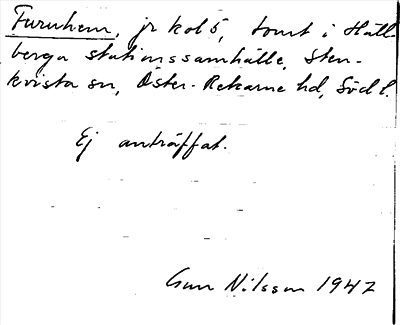 Furuhem, jr kol 5, tomt i Häll-
berga stationssamhälle, Sten-
kvista sn, Öster-Rekarne hd, Södl.
Ej anträffat.
Gun Nilsson 1947